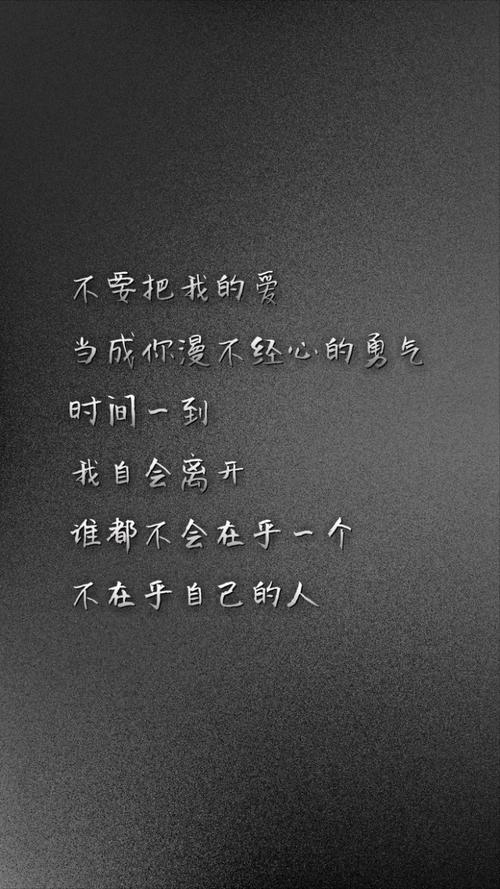 不要把我的爱
当成你漫不经心的勇气
时间一到
我自会离开
谁都不会在乎一个
不在乎自己的人